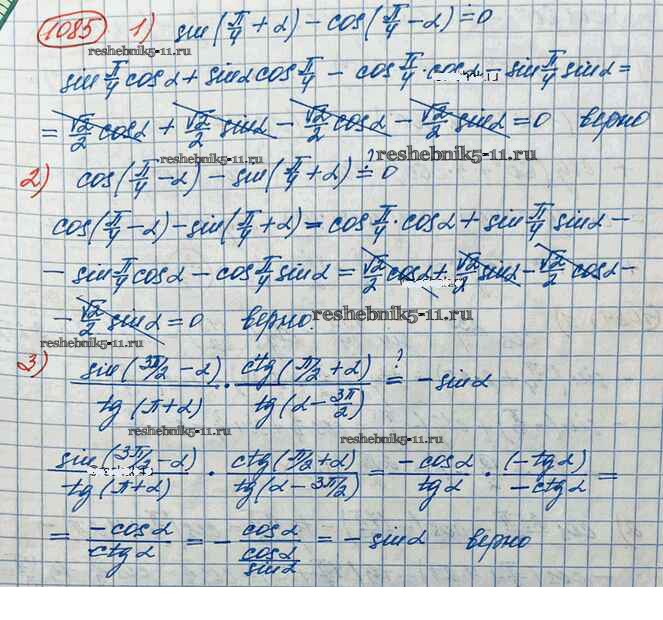 1085 1) sin(π/4 + α) − cos(π/4 − α) ≟ 0
reshebnik5-11.ru
sin π/4 cosα + sinα cos π/4 − cos π/4 · cosα − sin π/4 sinα =
= √2/2 cosα + √2/2 sinα − √2/2 cosα − √2/2 sinα = 0 верно
reshebnik5-11.ru
reshebnik5-11.ru
2) cos(π/4 − α) − sin(π/4 + α) ≟ 0
cos(π/4 − α) − sin(π/4 + α) = cos π/4 · cosα + sin π/4 sinα −
− sin π/4 cosα − cos π/4 sinα = √2/2 cosα + √2/2 sinα − √2/2 cosα −
− √2/2 sinα = 0 верно.
reshebnik5-11.ru
reshebnik5-11.ru
3) sin(3π/2 − α)/tg(π + α) · ctg(π/2 + α)/tg(α − 3π/2) ≟ − sinα
reshebnik5-11.ru
reshebnik5-11.ru
sin(3π/2 − α)/tg(π + α) · ctg(π/2 + α)/tg(α − 3π/2) = −cosα/tgα · (−tgα)/−ctgα =
= −cosα/ctgα = − cosα/(cosα/sinα) = − sinα верно